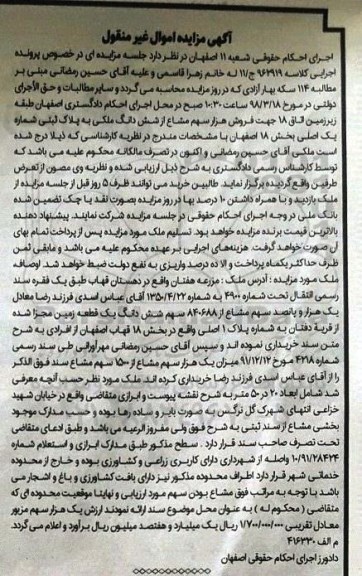 آگهی مزایده اموال غیر منقول
اجرای احکام حقوقی شعبه ۱۱ اصفهان در نظر دارد جلسه مزایده ای در خصوص پرونده
اجرایی کلاسه ۹۶۲۹۱۹ ج/۱۱ له خانم زهرا قاسمی و علیه آقای حسین رمضانی مبنی بر
مطالبه ۱۱۴ سکه بهار آزادی که در روز مزایده محاسبه می گردد و سایر مطالبات و حق الأجرای
دولتی در مورخ ۹۸/۳/۱۸ ساعت ۱۰:۳۰ صبح در محل اجرای احکام دادگستری اصفهان طبقه
زیرزمین اتاق ۱۸ جهت فروش هزار سهم مشاع از شش دانگ ملکی به پلاک ثبتی شماره
یک اصلی بخش ۱۸ اصفهان با مشخصات مندرج در نظریه کارشناسی که ذیلا درج شده
است ملکی آقای حسین رمضانی و اکنون در تصرف مالکانه محکوم علیه می باشد که
توسط کارشناس رسمی دادگستری به شرح ذیل ارزیابی شده و نظریه وی مصون از تعرض
طرفین واقع گردیده برگزار نماید. طالبین خرید می توانند ظرف ۵ روز قبل از جلسه مزایده از
ملک بازدید و با همراه داشتن ۱۰ درصد بها در روز مزایده بصورت نقد یا چک تضمین شده
بانک ملی در وجه اجرای احکام حقوقی در جلسه مزایده شرکت نمایند. پیشنهاد دهنده
بالاترین قیمت برنده مزایده خواهد بود. تسلیم ملک مورد مزایده پس از پرداخت تمام بهای
آن صورت خواهد گرفت. هزینه‌های اجرایی بر عهده محکوم علیه می باشد و مابقی ثمن
ظرف حداکثر یکماه پرداخت و الا ده درصد واریزی به نفع دولت ضبط خواهد شد. اوصافه
ملک مورد مزایده : آدرس ملک : مزرعه هفتان واقع در دهستان قهاب طبق یک فقره سند
رسمی انتقال تحت شماره ۴۹۰۰ به شماره ۱۳۵۰/۴/۲۲ آقای عباس اسدی فرزند رضا معادل
یک هزار و پانصد سهم مشاع از ۸۴۰۶۸۸ سهم شش دانگ یک قطعه زمین مجزا شده
از قریة دفتان به شماره پلاک ۱ اصلی واقع در بخش ۱۸ قهاب اصفهان از افرادی به شرح
متن سند خریداری نموده اند و سپس آقای حسین رمضانی مهرآورانی طی سند رسمی
شماره ۴۲۱۸ مورخ ۹۱/۱۲/۱۲ میزان یک هزار سهم مشاع از ۱۵۰۰ سهم مشاع سند فوق الذکر
را از آقای عباس اسدی فرزند رضا خریداری کرده اند. ملک مورد نظر حسب آنچه معرفی
شد شامل ابعاد ۲۰ در ۵۰ متر به شرح نقشه پیوست و ابرازی متقاضی واقع در خیابان شهید
خزاعی انتهای شهرک گل نرگس به صورت بایر و ساده رها بوده و حسب مدارک موجود
بخشی مشاع از سند ثبتی به شرح فوق ولی مفروز الرعیه می باشد و طبق ادعای متقاضی
تحت تصرف صاحب سند قرار دارد . سطح مذکور طبق مدارک ابرازی و استعلام شماره
۱۰/۹۱/۲۸۴۲۴ واصله از شهرداری دارای کاربری زراعی و کشاورزی بوده و خارج از محدوده
خدماتی شهر قرار دارد اطراف محدوده مذکور نیز دارای بافت کشاورزی و باغ و اشجار می
باشد با توجه به مراتب فوق مشاع بودن سهم مورد ارزیابی و نهایتا موقعیت محدوده ای که
متقاضی ( محکوم له ) به عنوان محل موضوع سند ارائه نمودند ارزش یک هزار سهم مزبور
معادل تقریبی ۱/۷۰۰/۰۰۰/۰۰۰ ریال یک میلیارد و هفتصد میلیون ریال برآورد و اعلام می گردد.
م الف ۴۱۶۳۳۰
دادورز اجرای احکام حقوقی اصفهان